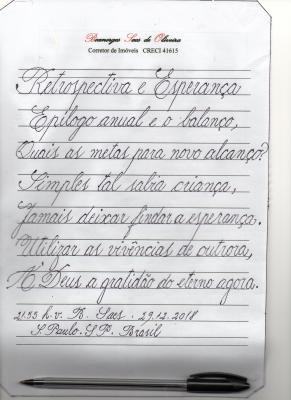 Boanerges Saes de Oliveira
Corretor de Imóveis CRECI 41615
Retrospectiva e Esperança
Epílogo anual e o balanço,
Quais as metas para novo alcanço?
Simples tal sabia criança,
Jamais deixar findar a esperança.
Utilizar as vivências de outrora,
A Deus a gratidão do eterno agora.
21:55 h.v. B. Saes - 29.12.2018
S. Paulo - S.P. Brasil